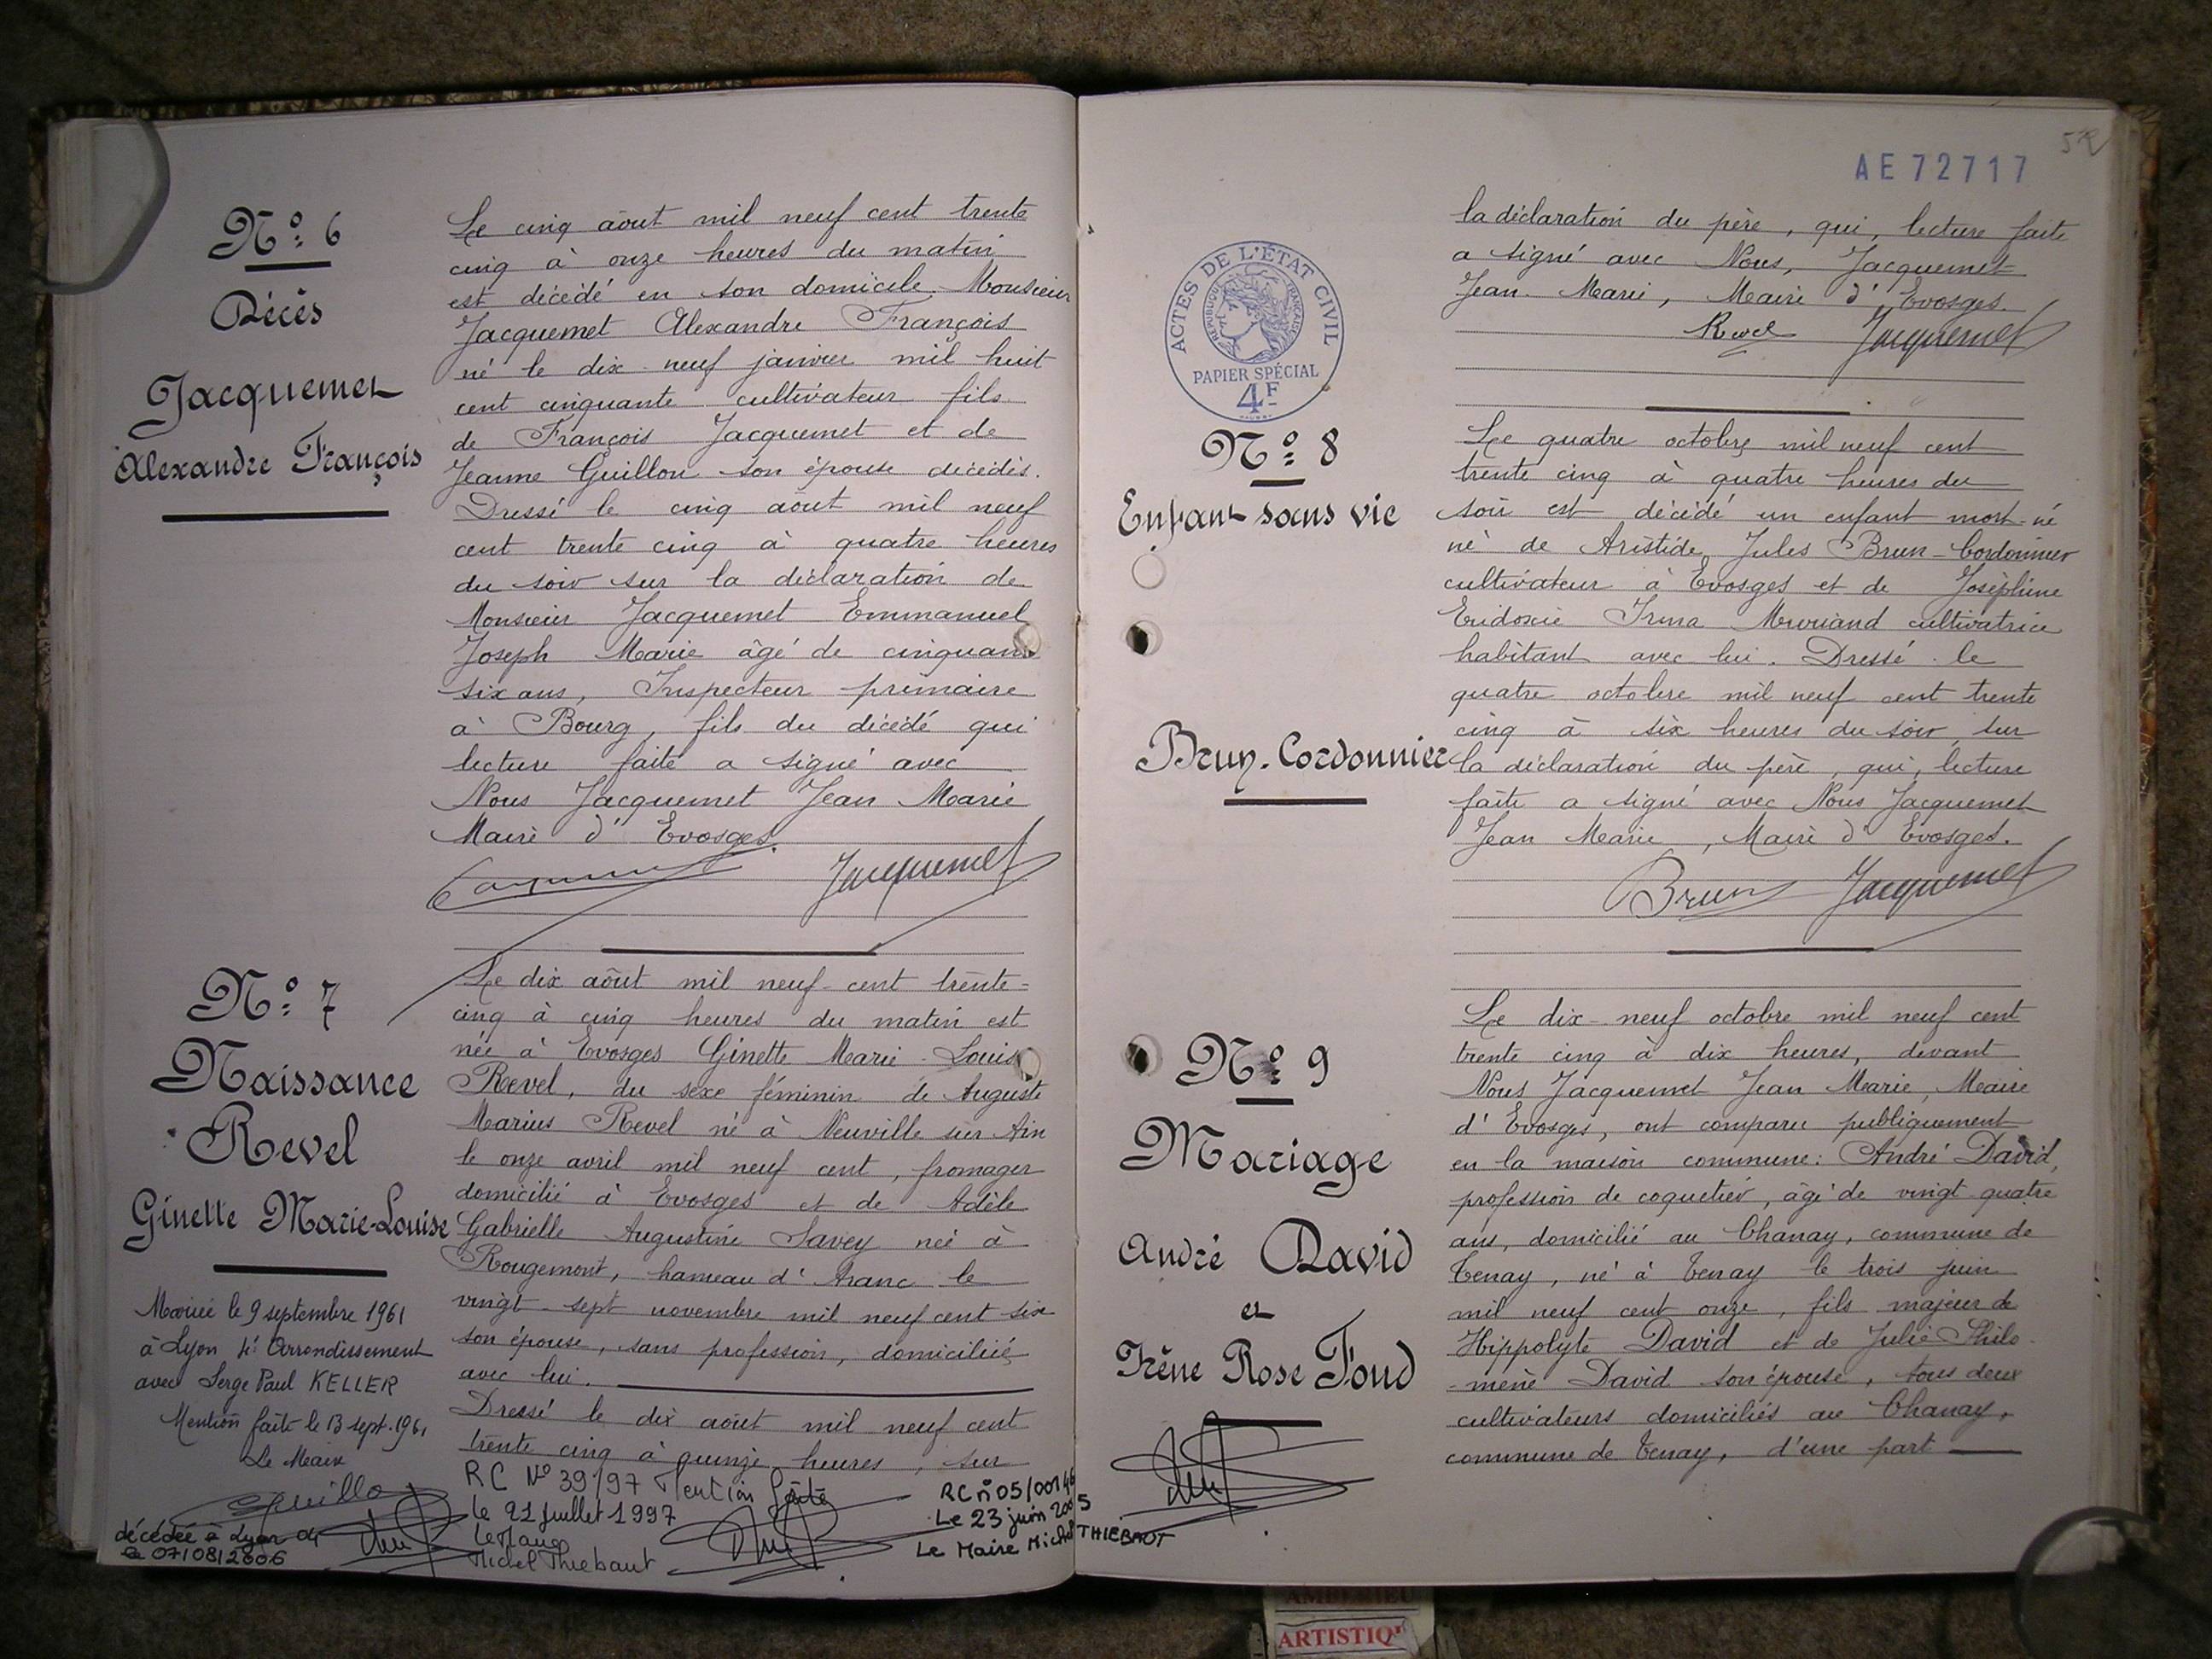 N° 6
Décès
Jacquemet
Alexandre François
Le cinq août mil neuf cent trente
cinq à onze heures du matin
est décédé en son domicile Monsieur
Jacquemet Alexandre François
né le dix-neuf janvier mil huit
cent cinquante cultivateur fils
de François Jacquemet et de
Jeanne Guillon son épouse décédés.
Dressé le cinq août mil neuf
cent trente cinq à quatre heures
du soir sur la déclaration de
Monsieur Jacquemet Emmanuel
Joseph Marie âgé de cinquante
six ans, Inspecteur primaire
à Bourg, fils du décédé qui
lecture faite a signé avec
Nous Jacquemet Jean Marie
Maire d'Evosges.
Jacquemet
N° 7
Naissance
Revel
Ginette Marie-Louise
Mariée le 9 septembre 1961
à Lyon 4e Arrondissement
avec Serge Paul KELLER
Mention faite le 13 sept. 1961
Le Maire
décédée à Lyon 04
le 07/08/2006
Le dix août mil neuf-cent trente-
cinq à cinq heures du matin est
née à Evosges Ginette Marie-Louise
Revel, du sexe féminin de Auguste
Marius Revel né à Neuville sur Ain
le onze avril mil neuf cent, fromager
domicilié à Evosges et de Adèle
Gabrielle Augustine Savey née à
Rougemont, hameau d'Aranc le
vingt-sept novembre mil neuf cent six
son épouse, sans profession, domiciliée
avec lui.
Dressé le dix août mil neuf cent
trente cinq à quinze heures, sur
RC N° 39/97 Mention faite
le 21 juillet 1997
Le Maire
Michel Thiebaut
RC n°05/00146
Le 23 juin 2005
Le Maire Michel THIEBAUT
AE 72717
52
la déclaration du père, qui, lecture faite
a signé avec Nous, Jacquemet
Jean-Marie, Maire d'Evosges.
Revel Jacquemet
ACTES DE L'ÉTAT CIVIL
RÉPUBLIQUE FRANÇAISE
PAPIER SPÉCIAL
4F
N° 8
Enfant sans vie
Brun-Cordonnier
Le quatre octobre mil neuf cent
trente cinq à quatre heures du
soir est décédé un enfant mort-né
né de Aristide Jules Brun-Cordonnier
cultivateur à Evosges et de Joséphine
Eudoxie Irma cultivatrice
habitant avec lui. Dressé le
quatre octobre mil neuf cent trente
cinq à six heures du soir, sur
la déclaration du père, qui, lecture
faite a signé avec Nous Jacquemet
Jean Marie, Maire d'Evosges.
Brun Jacquemet
N° 9
Mariage
André David
et
Irène Rose Fond
Le dix-neuf octobre mil neuf cent
trente cinq à dix heures, devant
Nous Jacquemet Jean Marie, Maire
d'Evosges, ont comparu publiquement
en la maison commune: André David,
profession de coquetier, âgé de vingt-quatre
ans, domicilié au Chanay, commune de
Tenay, né à Tenay le trois juin
mil neuf cent onze, fils majeur de
Hippolyte David et de Julie Philo-
-mène David son épouse, tous deux
cultivateurs domiciliés au Chanay,
commune de Tenay, d'une part
AMBERIEU
ARTISTIQU